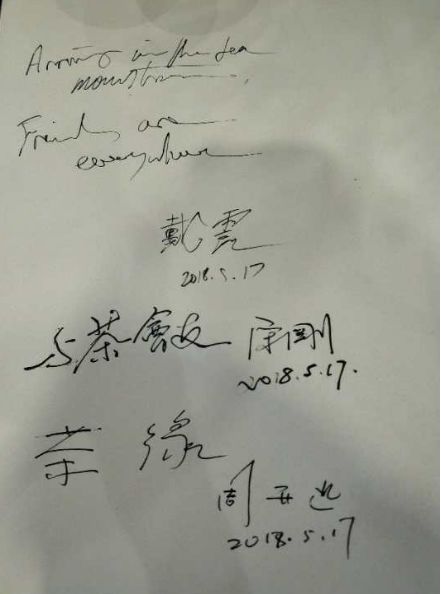 Arriving in the tea
mountain,
Friends are
everywhere
戴震
2018.5.17
与茶會友 宋刚
2018.5.17.
茶 缘
周
2018.5.17